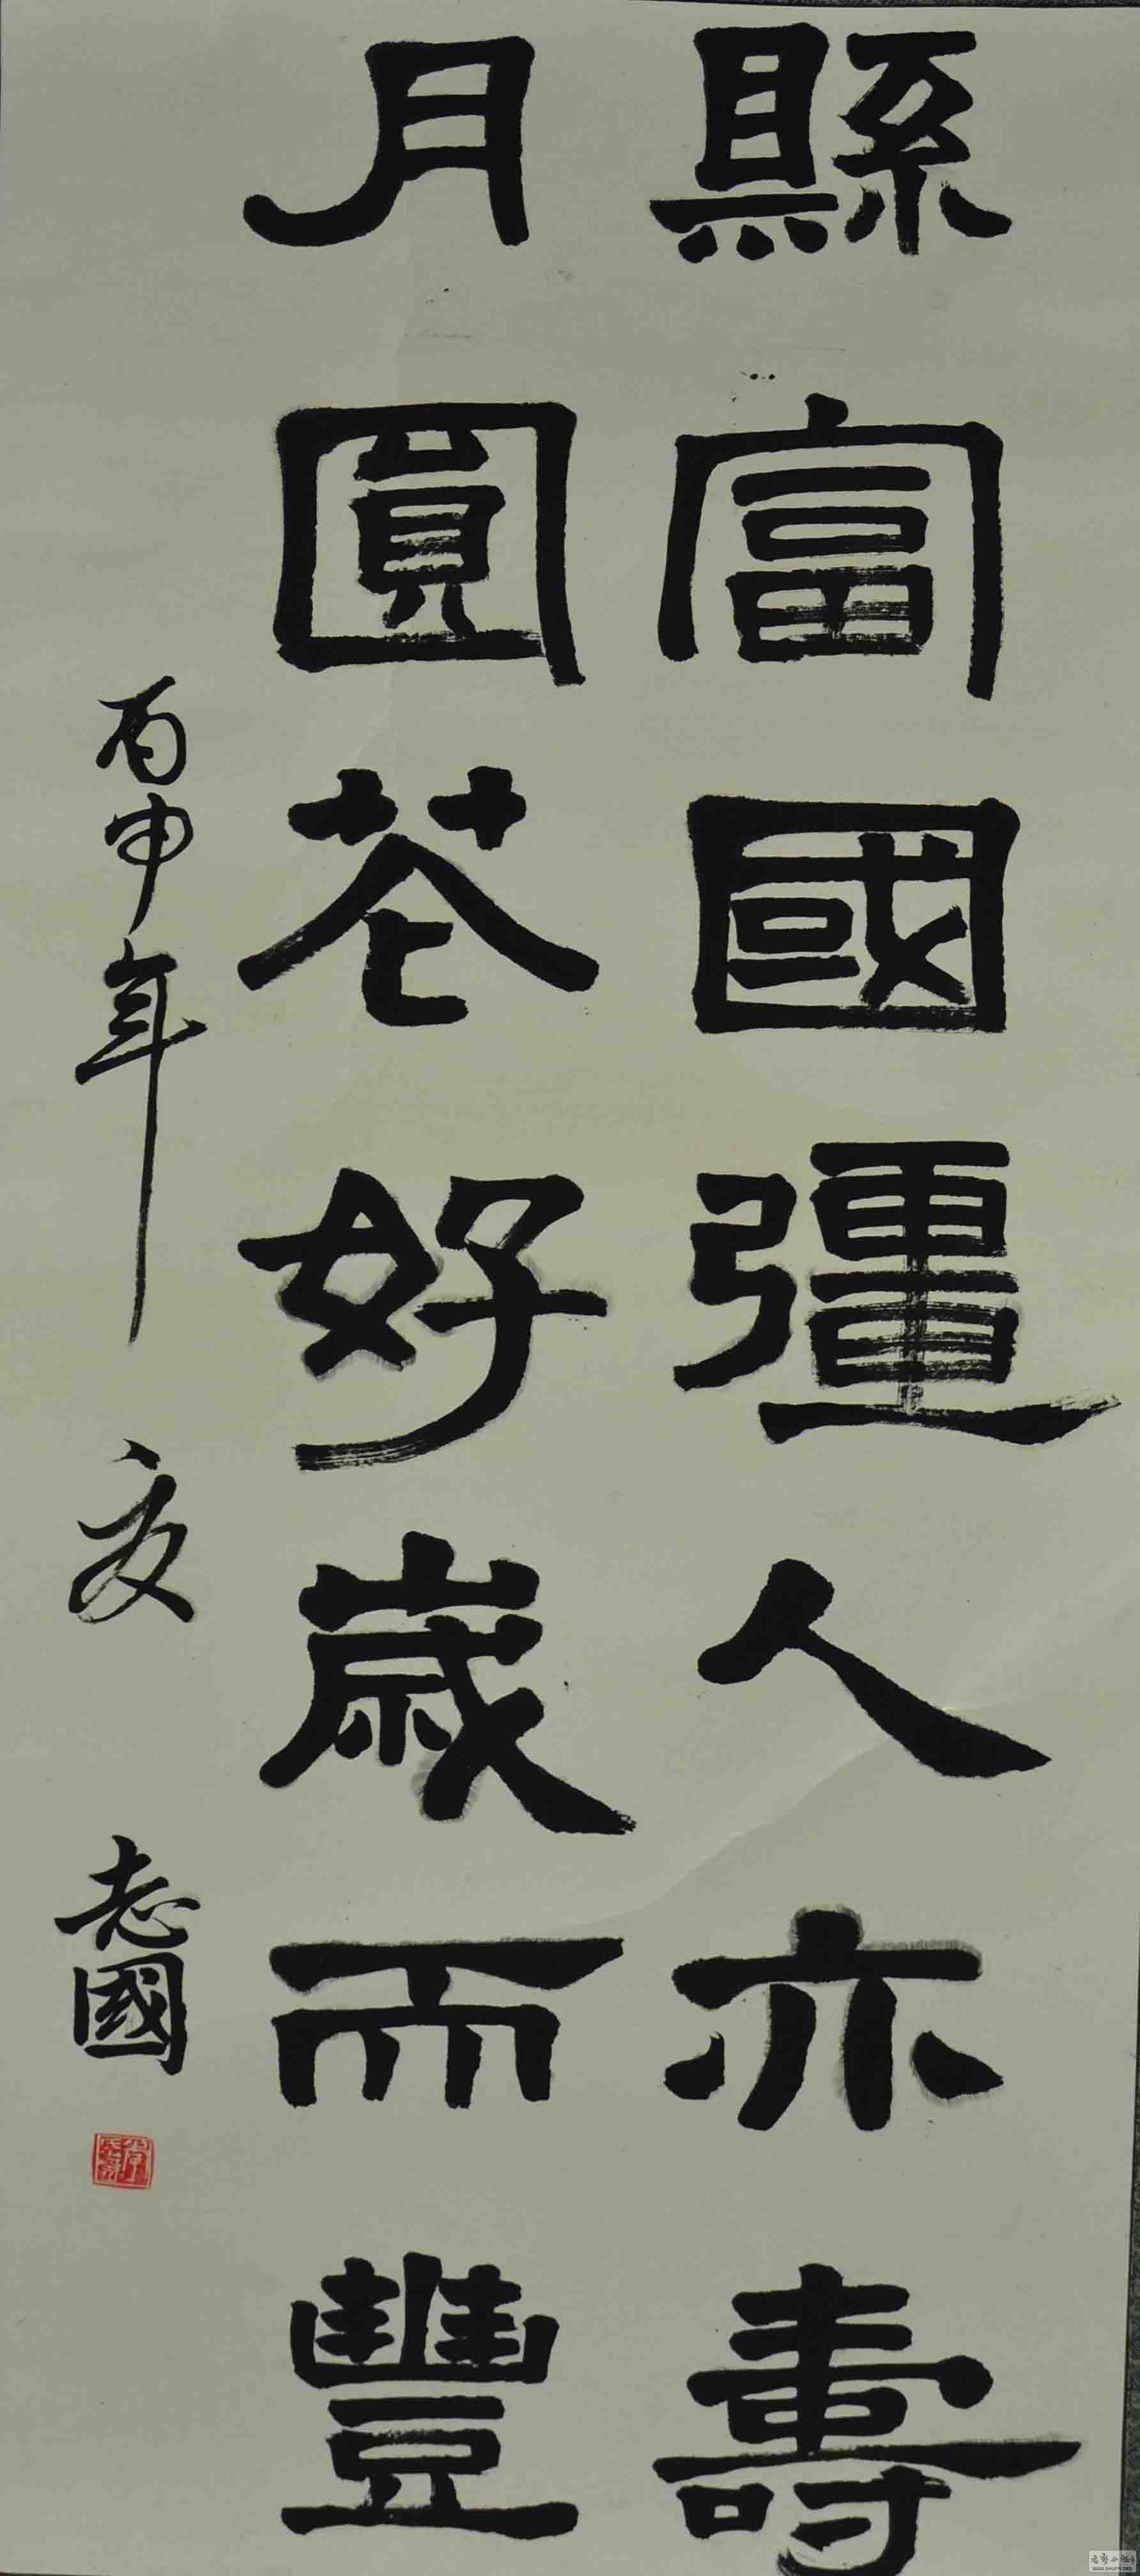 縣富國彊人亦壽
月圓花好歲而豐
丙申年 夏 志國